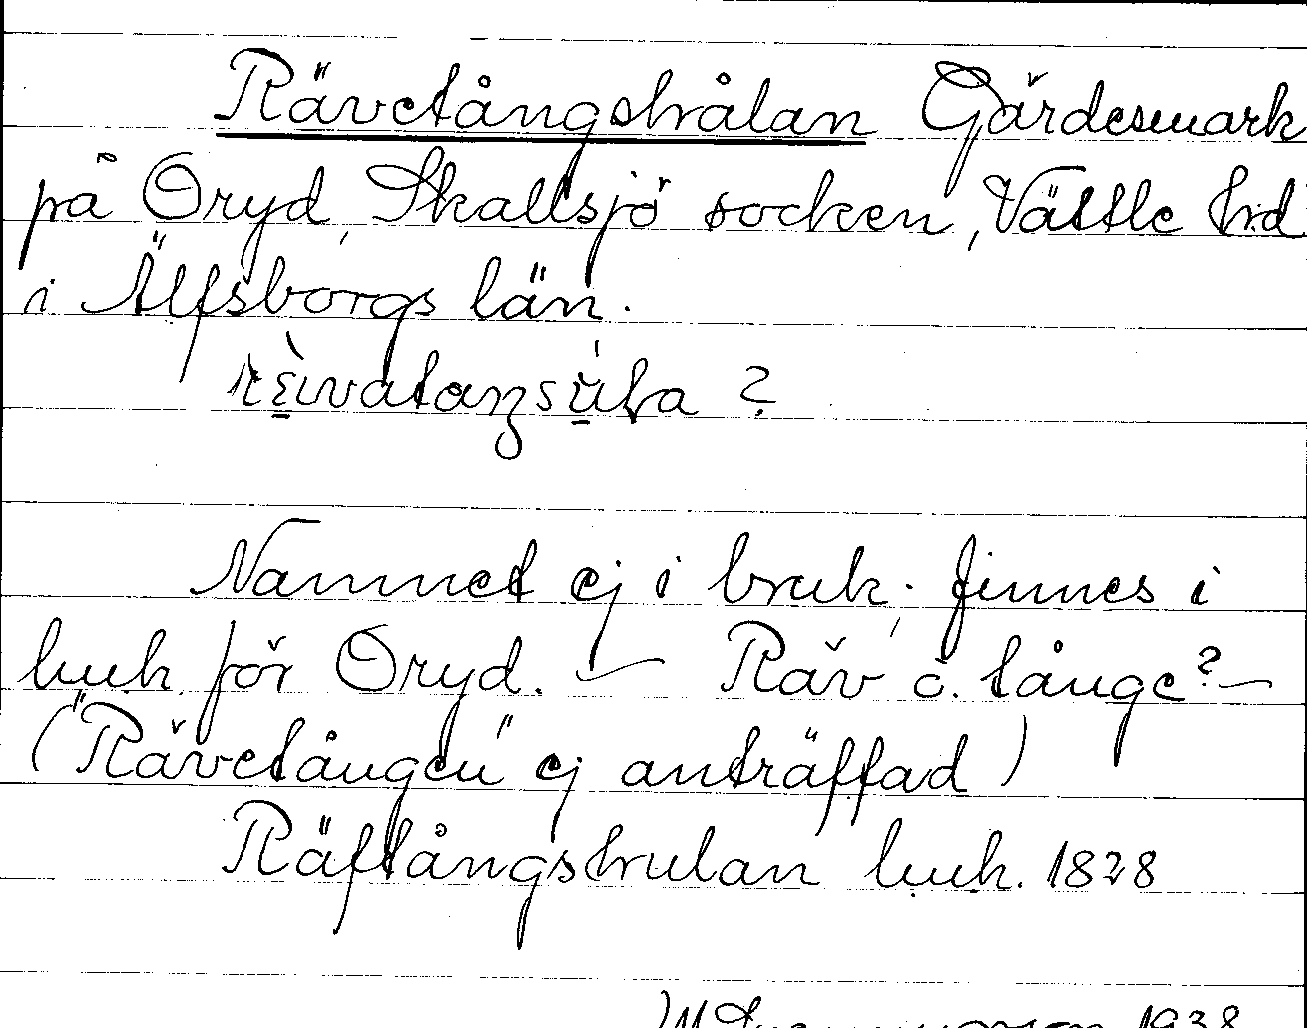 Rävetångshålan Gärdesmark
på Öryd, Skallsjö socken, Vättle hd
i Älfsborgs län.
?
Namnet ej i bruk; finnes i
luuk för Öryd. — Räv o. tånge? —
("Rävetången" ej anträffad)
Räftångshulan luuk. 1828
1938